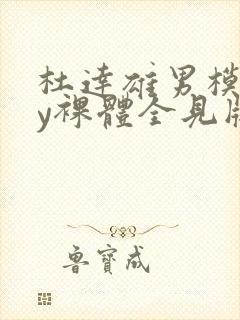 杜達雄男模
y裸體全見版
鲁寶成